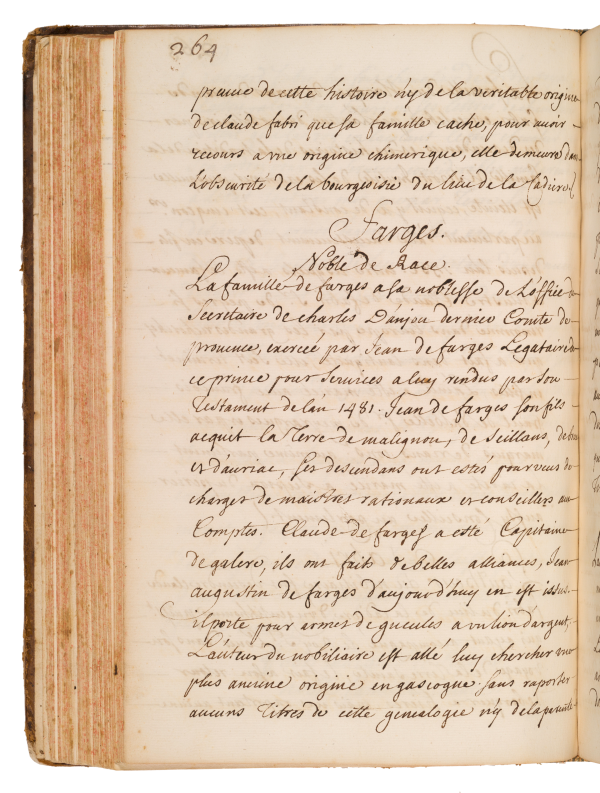 264
preuve de cette histoire n'y de la veritable origine
de claude fabri que sa famille cache, pour avoir
recours a une origine chimerique, elle demeure dans
L'obscurité de la bourgeoisie du lieu de la Cadiere
Farges.
Noble de Race.
La famille de farges a sa noblesse de L'office de
Secretaire de charles D'anjou dernier Comte de
provence, exercée par Jean de farges Legataire de
ce prince pour services a luy rendus par son
Testament de l'an 1481. Jean de farges son fils
acquit la Terre de malignon, de Seillans, de
et d'auriac, ses descendans ont estés pourveus de
charges de maistres rationaux et conseillers aux
Comptes. Claude de farges a esté Capitaine
de galere, ils ont faits de belles alliances, Jean
augustin de farges d'aujourd'huy en est issus.
il porte pour armes de gueules a un lion d'argent,
L'auteur du nobiliaire est allé luy chercher une
plus anciene origine en gascogne sans raporter
aucuns Titres de cette genealogie n'y de la parenté